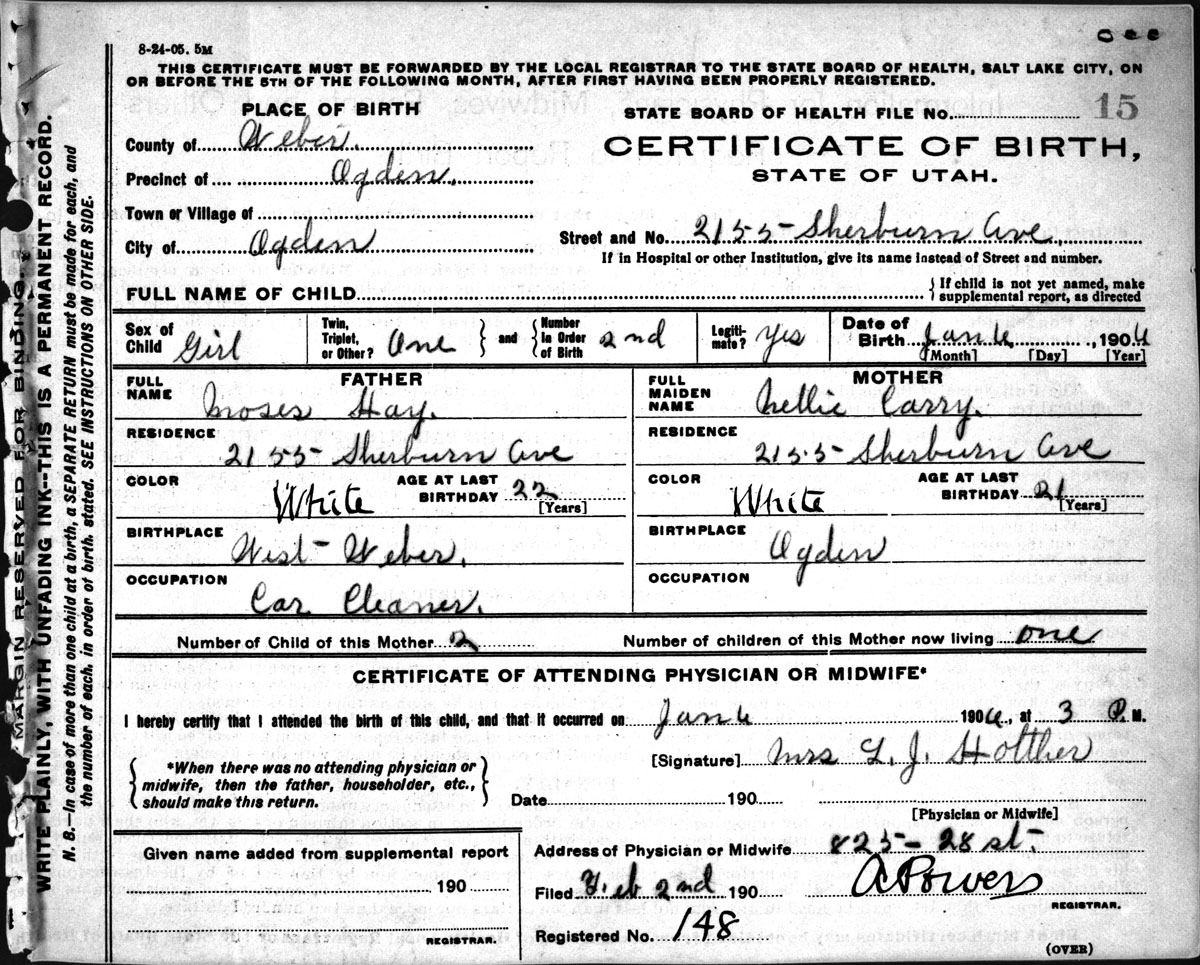 8-24-05. 5M
THIS CERTIFICATE MUST BE FORWARDED BY THE LOCAL REGISTRAR TO THE STATE BOARD OF HEALTH, SALT LAKE CITY, ON
OR BEFORE THE 5TH OF THE FOLLOWING MONTH, AFTER FIRST HAVING BEEN PROPERLY REGISTERED.
PLACE OF BIRTH
County of Weber.
Precinct of Ogden.
Town or Village of
City of Ogden
STATE BOARD OF HEALTH FILE NO. 15
CERTIFICATE OF BIRTH,
STATE OF UTAH.
Street and No. 2155 Sherburn Ave.
If in Hospital or other Institution, give its name instead of Street and number.
FULL NAME OF CHILD
If child is not yet named, make
supplemental report, as directed
Sex of Child Girl
Twin, Triplet, or Other? One
and Number in Order of Birth 2nd
Legitimate? Yes
Date of Birth Jan 6, 1906
[Month] [Day] [Year]
FATHER
FULL NAME Moses Hay.
RESIDENCE
2155 Sherburn Ave
COLOR White AGE AT LAST BIRTHDAY 22
[Years]
BIRTHPLACE
West Weber.
OCCUPATION
Car Cleaner.
MOTHER
FULL MAIDEN NAME Nellie Carry.
RESIDENCE
2155 Sherburn Ave
COLOR White AGE AT LAST BIRTHDAY 21
[Years]
BIRTHPLACE
Ogden
OCCUPATION
Number of Child of this Mother 2 Number of children of this Mother now living one
CERTIFICATE OF ATTENDING PHYSICIAN OR MIDWIFE*
I hereby certify that I attended the birth of this child, and that it occurred on Jan 6 1906, at 3 P. M.
*When there was no attending physician or
midwife, then the father, householder, etc.,
should make this return.
[Signature] Mrs L. J. Holther
Date 190
[Physician or Midwife]
Given name added from supplemental report
190
REGISTRAR.
Address of Physician or Midwife 825 - 28 st.
Filed Feb 2nd 190 A Powers
REGISTRAR.
Registered No. 148
(OVER)
MARGIN RESERVED FOR BINDING.
WRITE PLAINLY, WITH UNFADING INK--THIS IS A PERMANENT RECORD.
N. B.—In case of more than one child at a birth, a SEPARATE RETURN must be made for each, and
the number of each, in order of birth, stated. SEE INSTRUCTIONS ON OTHER SIDE.